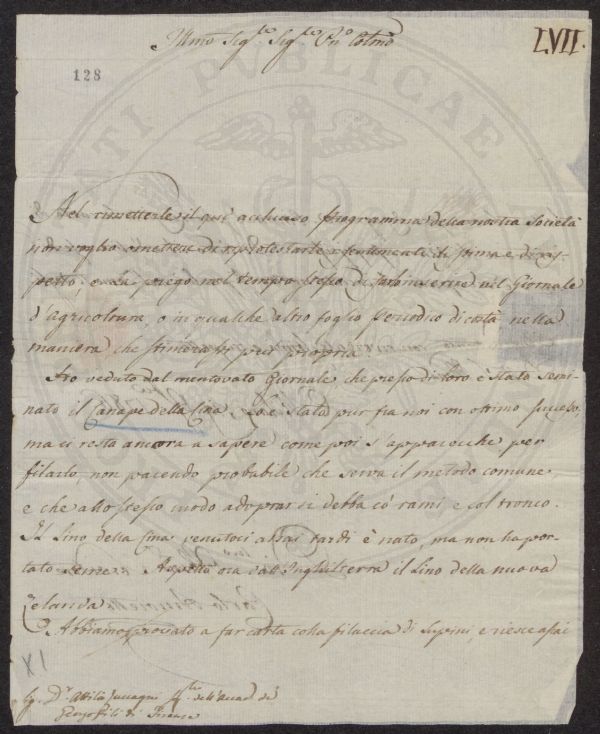 Illmo Sigre Sigre Pne Colmo
LVII.
128
Nel rimetterle il quì acchiuso programma della nostra Società
non voglio omettere di riprotestarle i sentimenti di stima e di ris-
petto, e La priego nel tempo stesso di farlo inserire nel Giornale
d'Agricoltura, o in qualche altro foglio periodico di costà nella
maniera che stimerà più propria.
Ho veduto dal mentovato Giornale che presso di loro è stato semi-
nato il Canape della Cina. Lo è stato pur fra noi con ottimo successo,
ma ci resta ancora a sapere come poi s'apparecchi per
filarlo, non parendo probabile che serva il metodo comune
e che allo stesso modo adoprar si debba co' rami e col tronco.
Il Lino della Cina venutoci assai tardi è nato, ma non ha por-
tato seme. Aspetto ora dall'Inghilterra il Lino della nuova
Zelanda.
Abbiamo provato a far carta colla filaccia di Lupini, e riesce assai
IX
Sig. Dr. Attilio Zuccagni Segrio dell'Accad. de'
Georgofili di Firenze